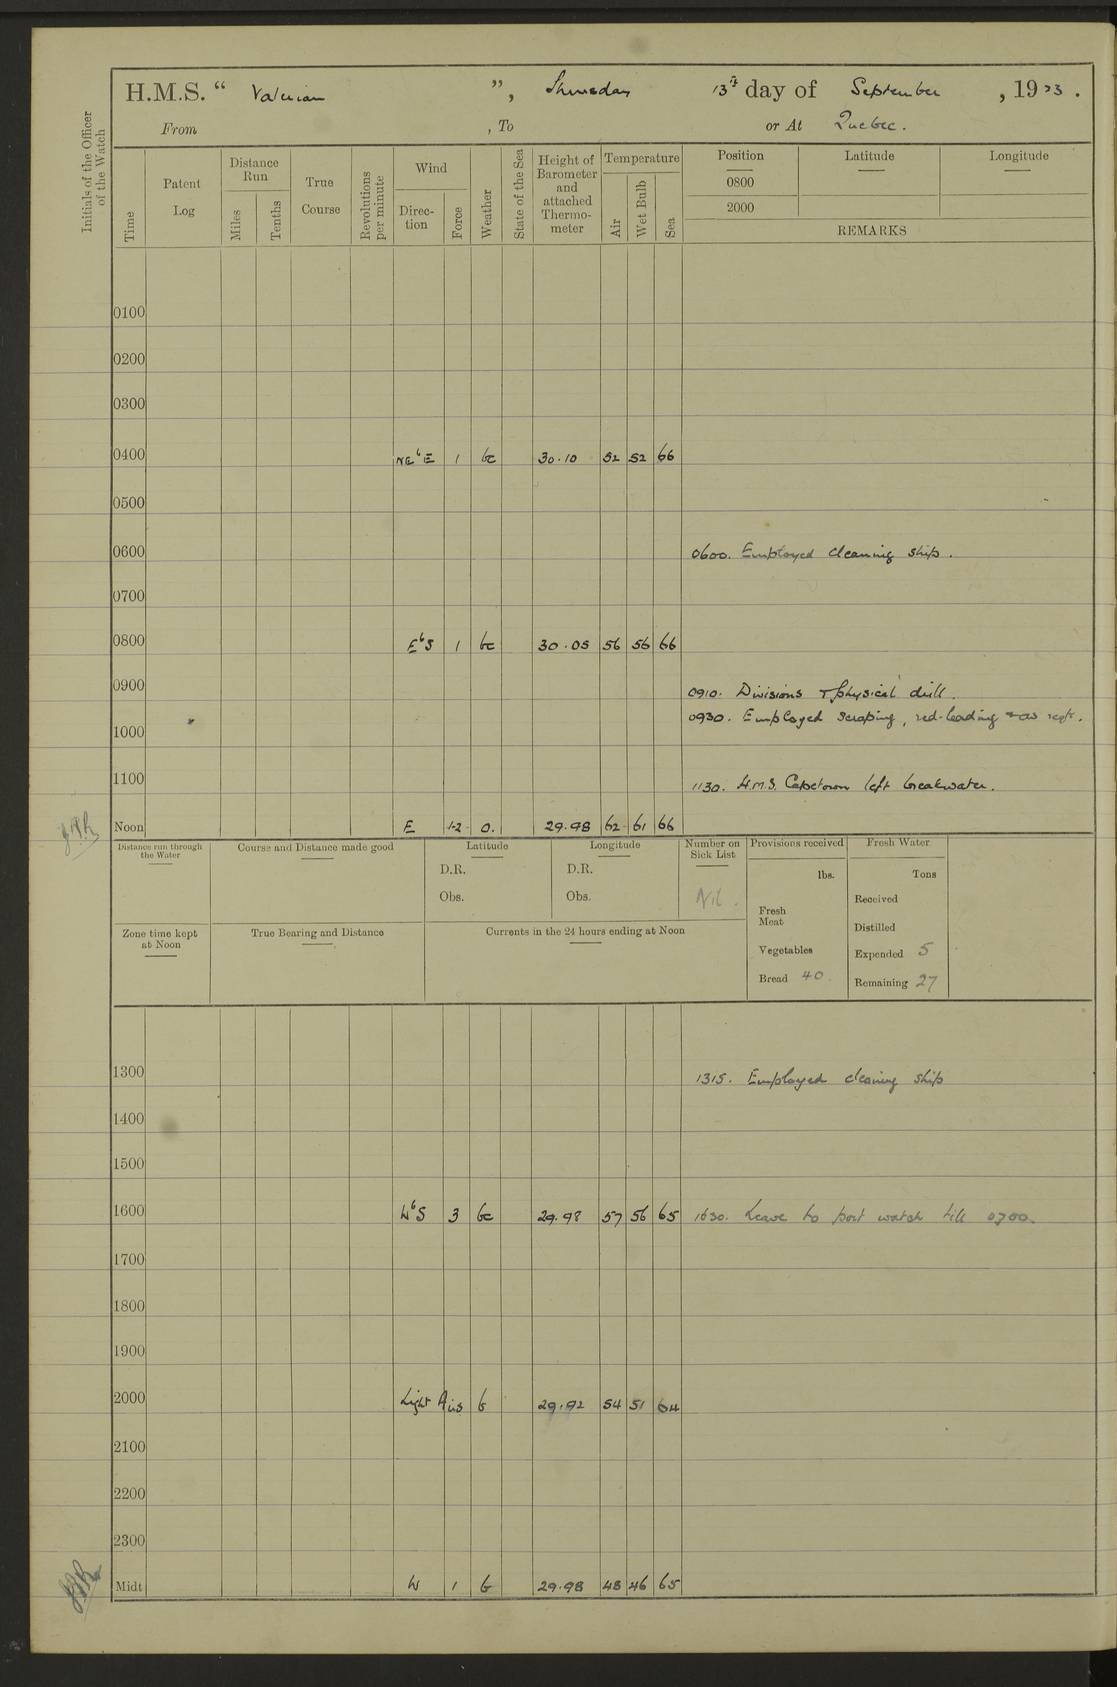 H.M.S. “ Valerian ”, Thursday 13th day of September, 1923.
From , To or At Quebec.
Initials of the Officer of the Watch
Time
Patent Log
Distance Run
Miles
Tenths
True Course
Revolutions per minute
Wind
Direc-tion
Force
Weather
State of the Sea
Height of Barometer and attached Thermo-meter
Temperature
Air
Wet Bulb
Sea
Position Latitude Longitude
0800
2000
REMARKS
0100
0200
0300
0400 NEbE 1 bc 30.10 52 52 66
0500
0600 0600. Employed cleaning ship.
0700
0800 EbS 1 bc 30.05 56 56 66
0900 0910. Divisions & physical drill.
0930. Employed scraping, red-leading
1000
1100 1130. H.M.S. Capetown left breakwater.
Noon E 1-2 o. 29.98 62 61 66
Distance run through the Water
Course and Distance made good
Latitude
D.R.
Obs.
Longitude
D.R.
Obs.
Number on Sick List
Nil.
Provisions received
lbs.
Fresh Meat
Vegetables
Bread 40.
Fresh Water
Tons
Received
Distilled
Expended 5
Remaining 27
Zone time kept at Noon
True Bearing and Distance
Currents in the 24 hours ending at Noon
1300 1315. Employed cleaning ship
1400
1500
1600 WbS 3 bc 29.98 57 56 65 1630. Leave to port watch till 0700.
1700
1800
1900
2000 Light Airs b 29.92 54 51 64
2100
2200
2300
Midt W 1 b 29.98 48 46 65